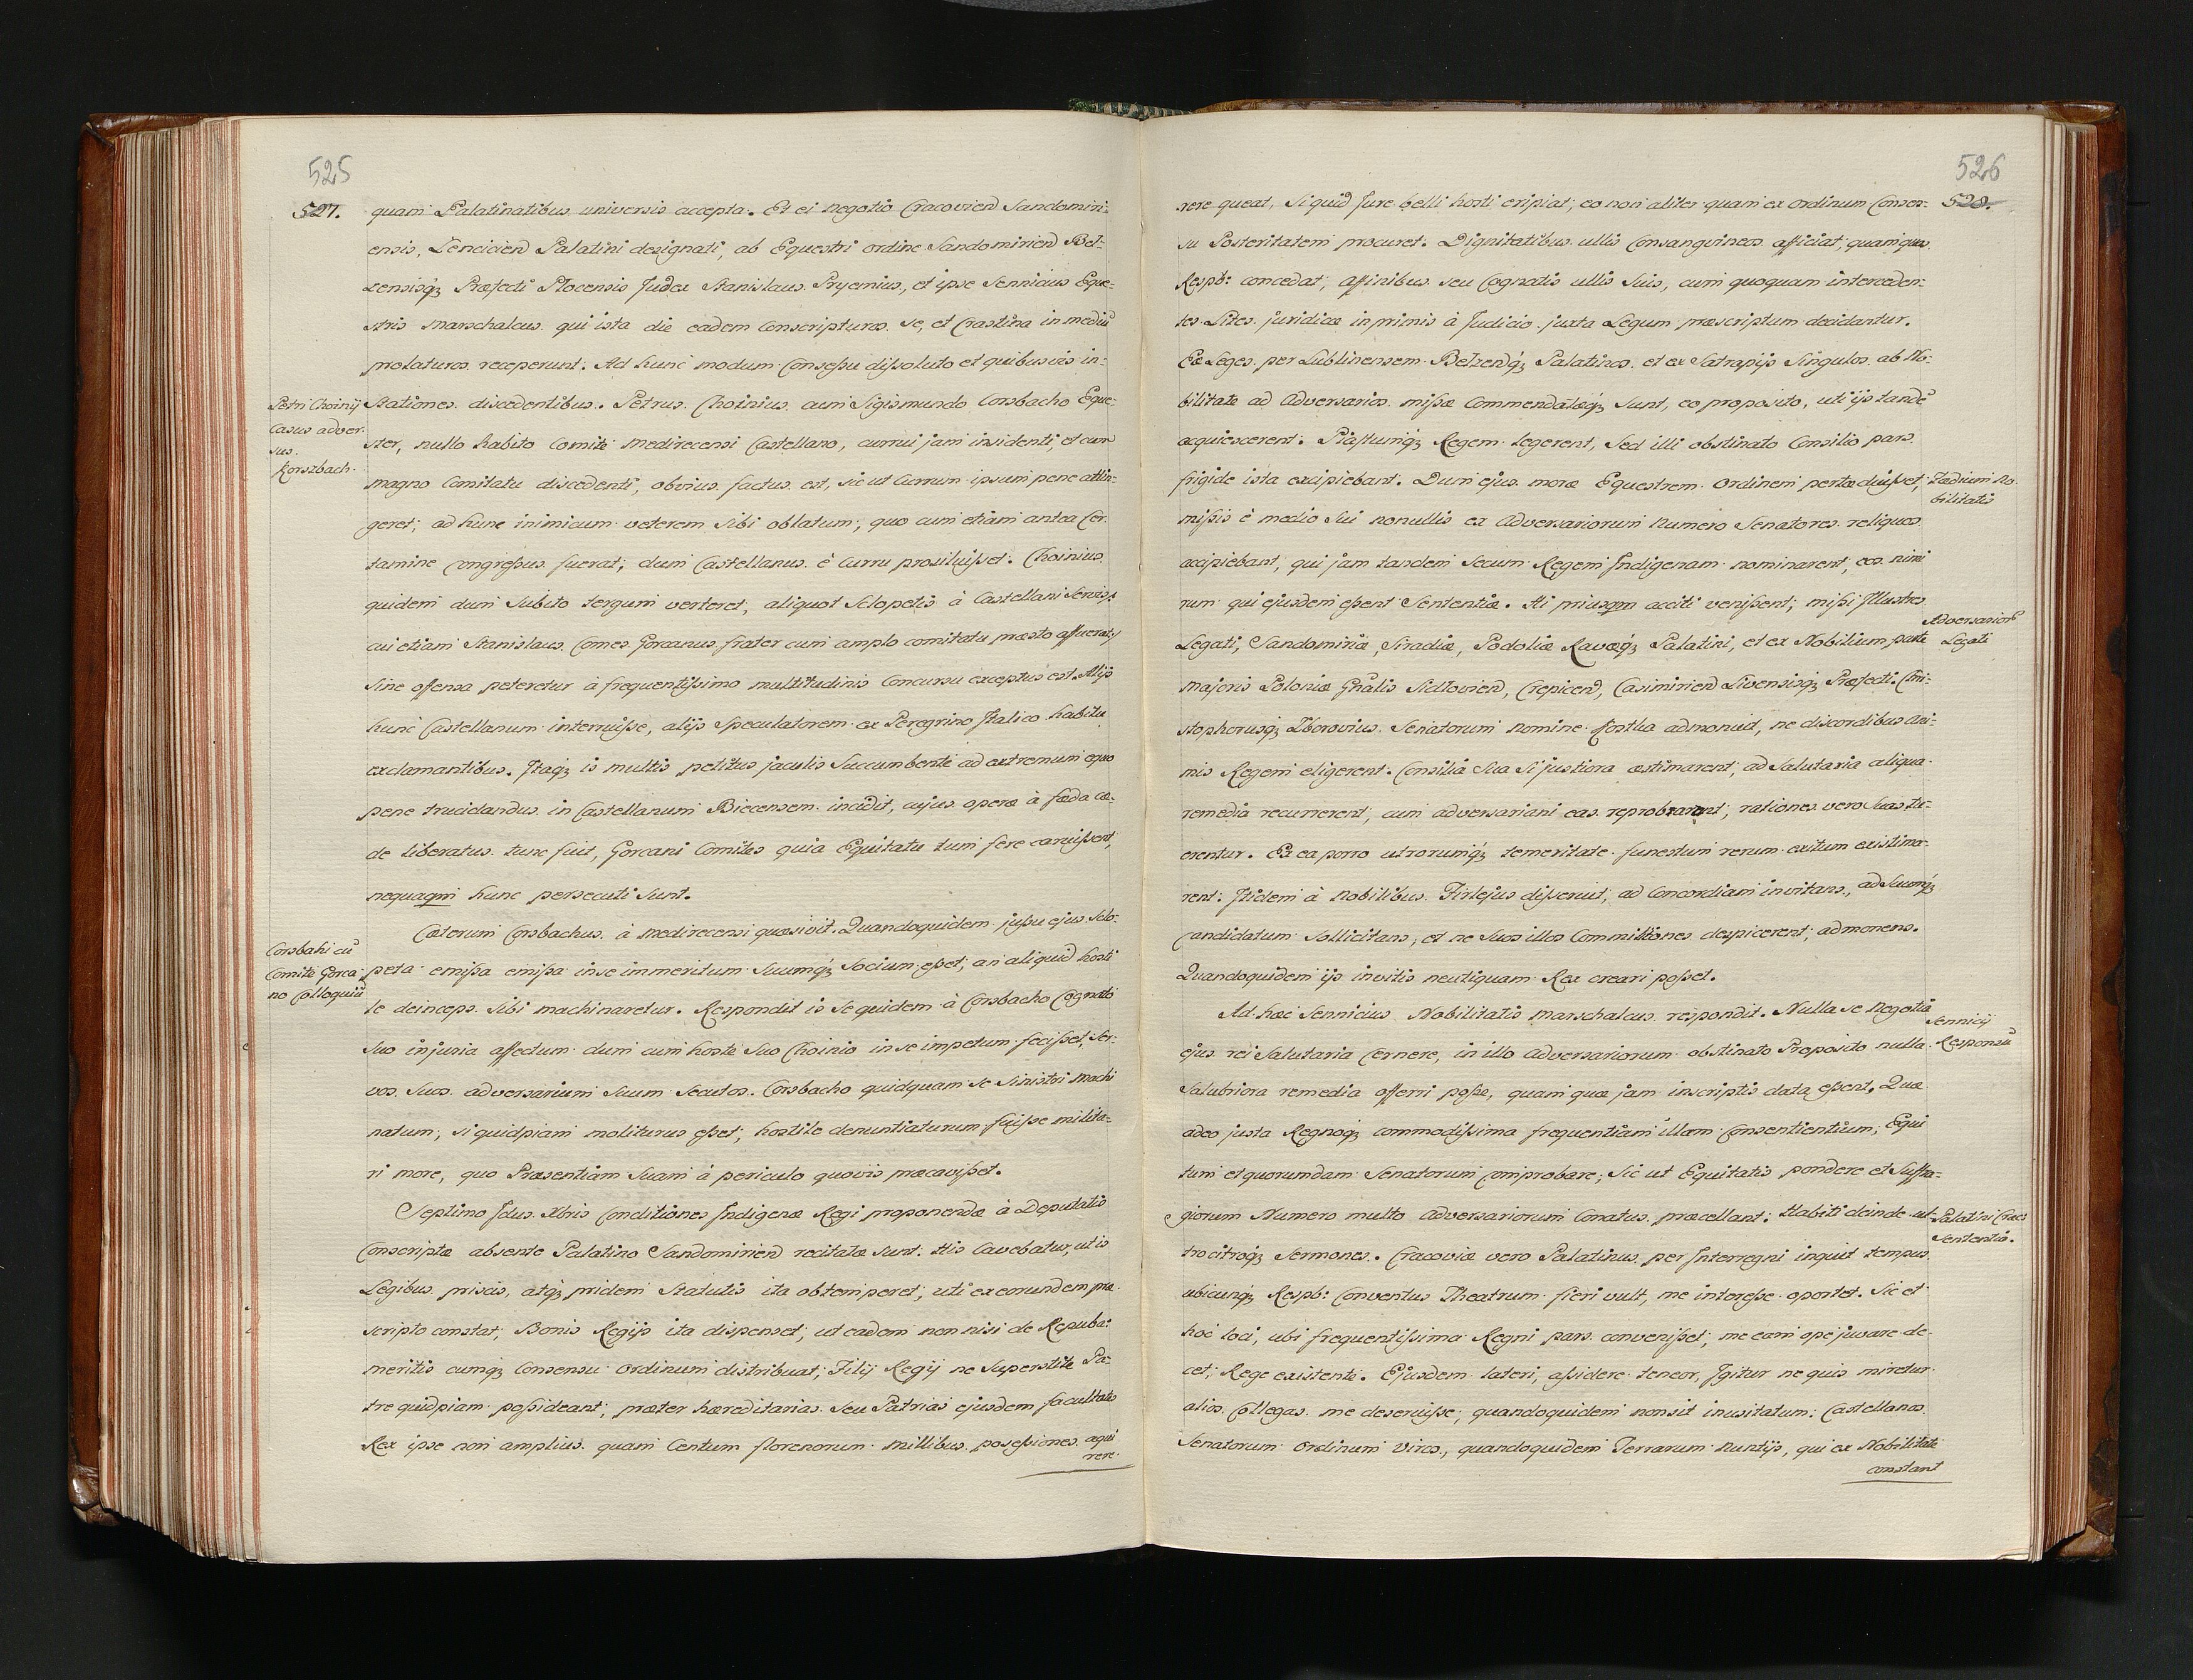 525
527.
quam Palatinatibus universis accepta. Et ei negotio Cracovien Sandomiri-
ensis, Lencicien Palatini designati, ab Equestri ordine Sandomirien Bel-
zensisq; Præfecti Plocensis Judex Stanislaus Pryemius, et ipse Sennicius Eque-
stris Marschalcus qui ista die eadem Conscripturos se, et Crastina in mediũ
prolaturos receperunt. Ad hunc modum Consessu dissoluto et quibusvis in-
Petri Choinij
Casus adver
sus
Korszbach.
Stationes discedentibus. Petrus Choinius cum Sigismundo Corsbacho Eque-
ster, nullo habito Comite Medirecensi Castellano, currui jam insidenti, et cum
magno Comitatu discedenti, obvius factus est, sic ut Currum ipsum pene attin-
geret; ad hunc inimicum veterem sibi oblatum; quo cum etiam antea Cer-
tamine Congressus fuerat; dum Castellanus è Curru prosiluisset. Choinius
quidem dum Subito tergum verteret, aliquot Sclopetis à Castellani Servis,
cui etiam Stanislaus Comes Gorcanus frater cum amplo comitatu præsto affuerat,
Sine offensa peteretur à frequentissimo multitudinis Concursu exceptus est. Alijs
hunc Castellanum interruisse, alijs Speculatorem ex Peregrino Italico habitu
exclamantibus. Itaq; is multis petitus jaculis Succumbente ad extremum equo
pene trucidandus in Castellanum Biecensem incidit, cujus opera à fæda cæ-
de liberatus tunc fuit, Gorcani Comites quia Equitatu tum fere caruissent,
nequaqm hunc persecuti Sunt.
Corsbahi cũ
Comite Gorca
no Colloquiũ
Cæterum Corsbachus à Medirecensi quæsivit. Quandoquidem jussu ejus Sclo-
peta emissa emissa in se immeritum Suumq; Socium esset; an aliquid hosti
le deinceps Sibi machinaretur. Respondit is Se quidem à Corsbacho Cognato
Suo injuria affectum dum cum hoste Suo Choinio in se impetum fecisset, Ser-
vos Suos adversarium Suum Secutos. Corsbacho quidquam se Sinistri Machi
natum; si quidpiam moliturus esset, hostile denuntiaturum fuisse milita-
ri more, quo Præsentiam Suam à periculo quovis præcavisset.
Septimo Idus Xbris Conditiones Indigenæ Regi proponendæ à Deputatis
Conscriptæ absente Palatino Sandomirien recitatæ Sunt. His Cavebatur, ut is
Legibus priscis, atq; pridem Statutis ita obtemperet, uti ex eorundem præ-
scripto constat; Bonis Regijs ita dispenset; ut eadem non nisi de Repuba:
meritis cumq; Consensu Ordinum distribuat; Filij Regij ne Superstite Pa-
tre quidpiam possideant; præter hæreditarias seu Patrias ejusdem facultates
Rex ipse non amplius quam Centum florenorum millibus possessiones aqui
rere
526
528.
rere queat, Si quid Jure belli hosti eripiat; eo non aliter quam ex ordinum Consen-
su Posteritatem procuret. Dignitatibus ullis Consangvineos afficiat; quam quas
Respb: concedat; affinibus seu Cognatis ullis Suis, cum quoquam interceden-
tes Lites juridicæ inprimis à Judicio juxta Legum præscriptum decidantur.
Eæ Leges per Lublinensem Belzenq; Palatinos et ex Satrapijs Singulos ab No-
bilitate ad Adversarios missæ Commendatæq; Sunt, eo proposito, uti ijs tandẽ
acquiescerent: Piastumq; Regem legerent, Sed illi obstinato Consilio pars
frigide ista excipiebant. Dum ejus moræ Equestrem Ordinem pertæduisset;
Tædium No
bilitatis
missis è medio Sui nonullis ex Adversariorum Numero Senatores reliquos
accipiebant, qui jam tandem Secum Regem Indigenam nominarent, eos nimi
rum qui ejusdem essent Sententiæ. Hi priusqm acciti venissent; missi Illustres
Adversariorũ
Legati
Legati, Sandomiriæ, Siradiæ, Podoliæ Ravæq; Palatini, et ex Nobilium parte
Majoris Poloniæ Gñalis Sidlovien, Crepicen, Casimirien Livensisq; Præfecti. Chri-
stophorusq; Zborovius Senatorum Nomine Kostka admonuit, ne discordibus ani-
mis Regem eligerent. Consilia Sua Si justiora æstimarent; ad Salutaria aliqua
remedia recurrerent; cum adversariani eas reprobrarent; rationes vero Suas tu-
erentur. Ex ea porro utrorumq; temeritate funestum rerum exitum existima-
rent: Itidem à Nobilibus Firlejus disseruit, ad Concordiam invitans, ad Suumq;
Candidatum Sollicitans, et ne Suos illos Commilitones despicerent; admonens.
Quandoquidem ijs invitis neutiquam Rex creari posset.
Ad hæc Sennicius Nobilitatis Marschalcus respondit. Nulla se Negotia
Sennicij
Responsũ
ejus rei Salutaria Cernere, in illo Adversariorum obstinato Proposito nulla
Salubriora remedia offerri posse, quam quæ jam inscriptis data essent. Quæ
adeo justa Regnoq; commodissima frequentiam illam Consentientium, Equi
tum et quorumdam Senatorum Comprobare; Sic ut Equitatis pondere et Suffra-
giorum Numero multo Adversariorum Conatus præcellant: Habiti deinde ul-
Palatini Crac
Sententia.
trocitroq; Sermones. Cracoviæ vero Palatinus per Interregni inquit tempus
ubicunq; Respb: Conventus Theatrum fieri vult, me interesse oportet. Sic et
hoc loci, ubi frequentissima Regni pars convenisset; me eam ope juvare de-
cet; Rege existente. Ejusdem lateri, assidere teneor, Igitur ne quis miretur
alios Collegas me deseruisse; quandoquidem non sit inusitatum: Castellanos
Senatorum Ordinum viros, quandoquidem Terrarum Nuntijs, qui ex Nobilitate
constant